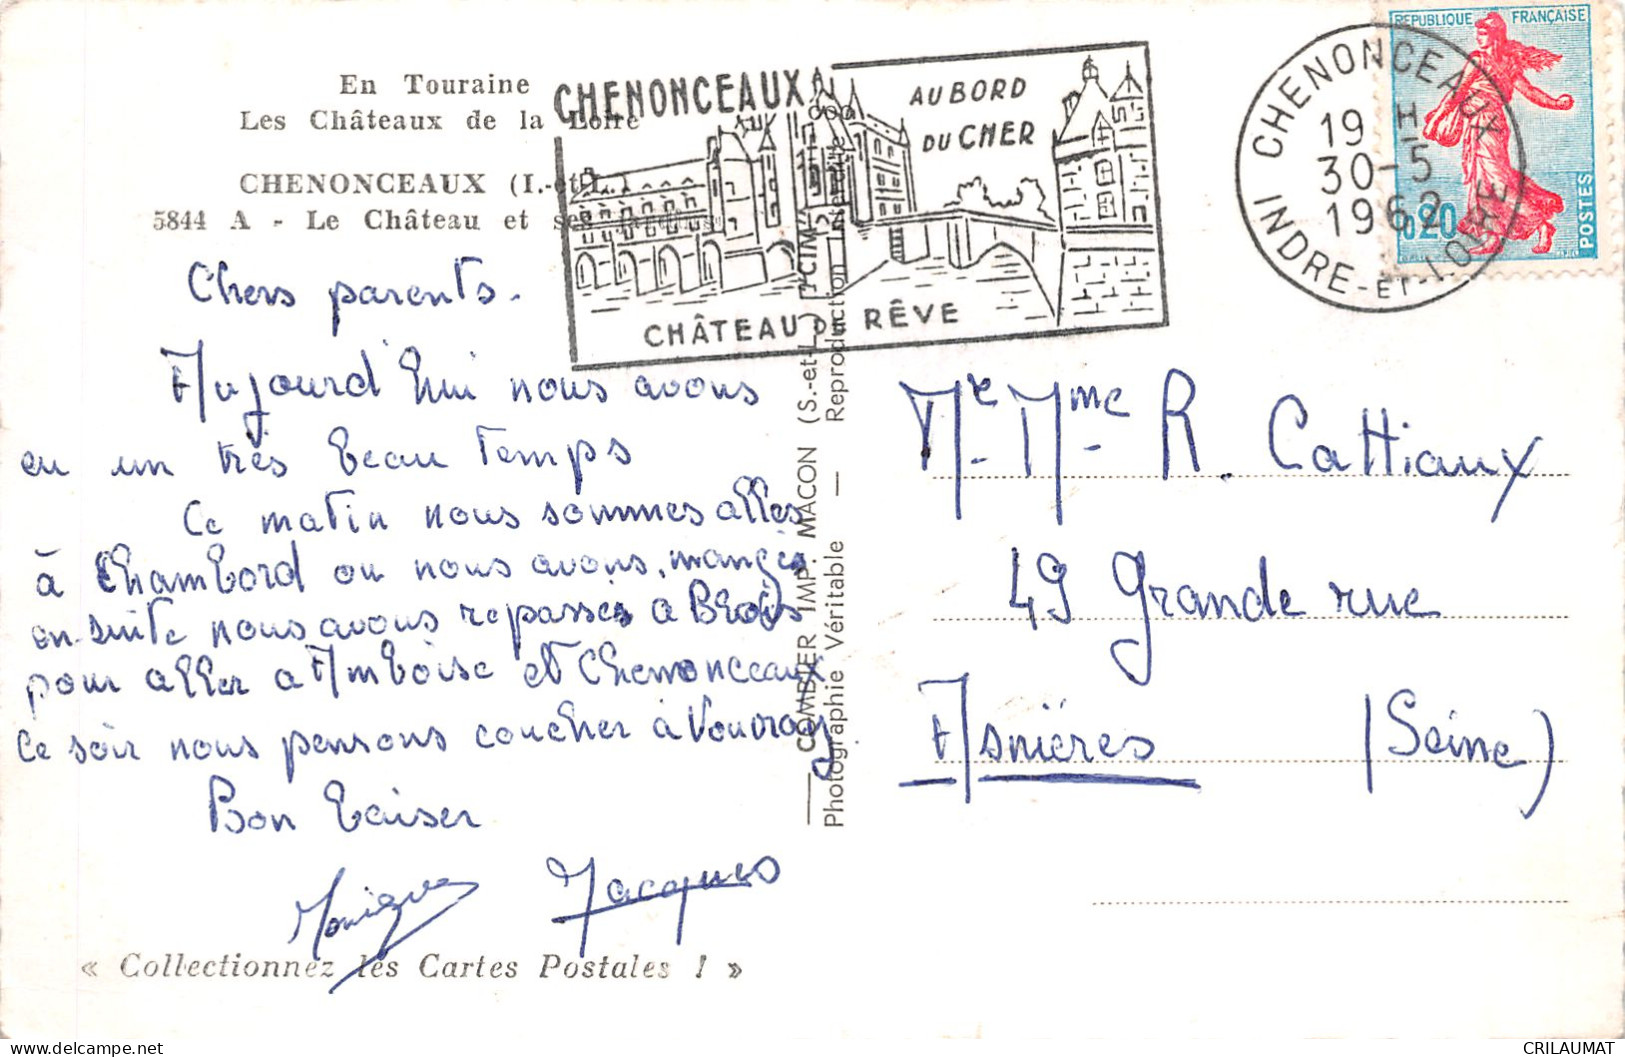 En Touraine
Les Châteaux de la Loire
CHENONCEAUX (I.-et-L.)
5844 A - Le Château et ses jardins
CHENONCEAUX
AU BORD
DU CHER
CHÂTEAU DE RÊVE
CHENONCEAUX
19 H
30-5
1962
INDRE-ET-LOIRE
REPUBLIQUE FRANÇAISE
0,20
POSTES
Chers parents.
Aujourd'hui nous avons
eu un très beau temps
Ce matin nous sommes allés
à Chambord ou nous avons mangés
en suite nous avons repassés a Blois
pour aller a Amboise et Chenonceaux
Ce soir nous pensons coucher à Vouvray
Bon baiser
Monique Jacques
« Collectionnez les Cartes Postales ! »
COMBIER IMP. MACON (S.-et-L.) "CIM"
Photographie Véritable — Reproduction interdite
Mr. Mme R. Cattiaux
49 Grande rue
Asnières (Seine)
CRILAUMAT